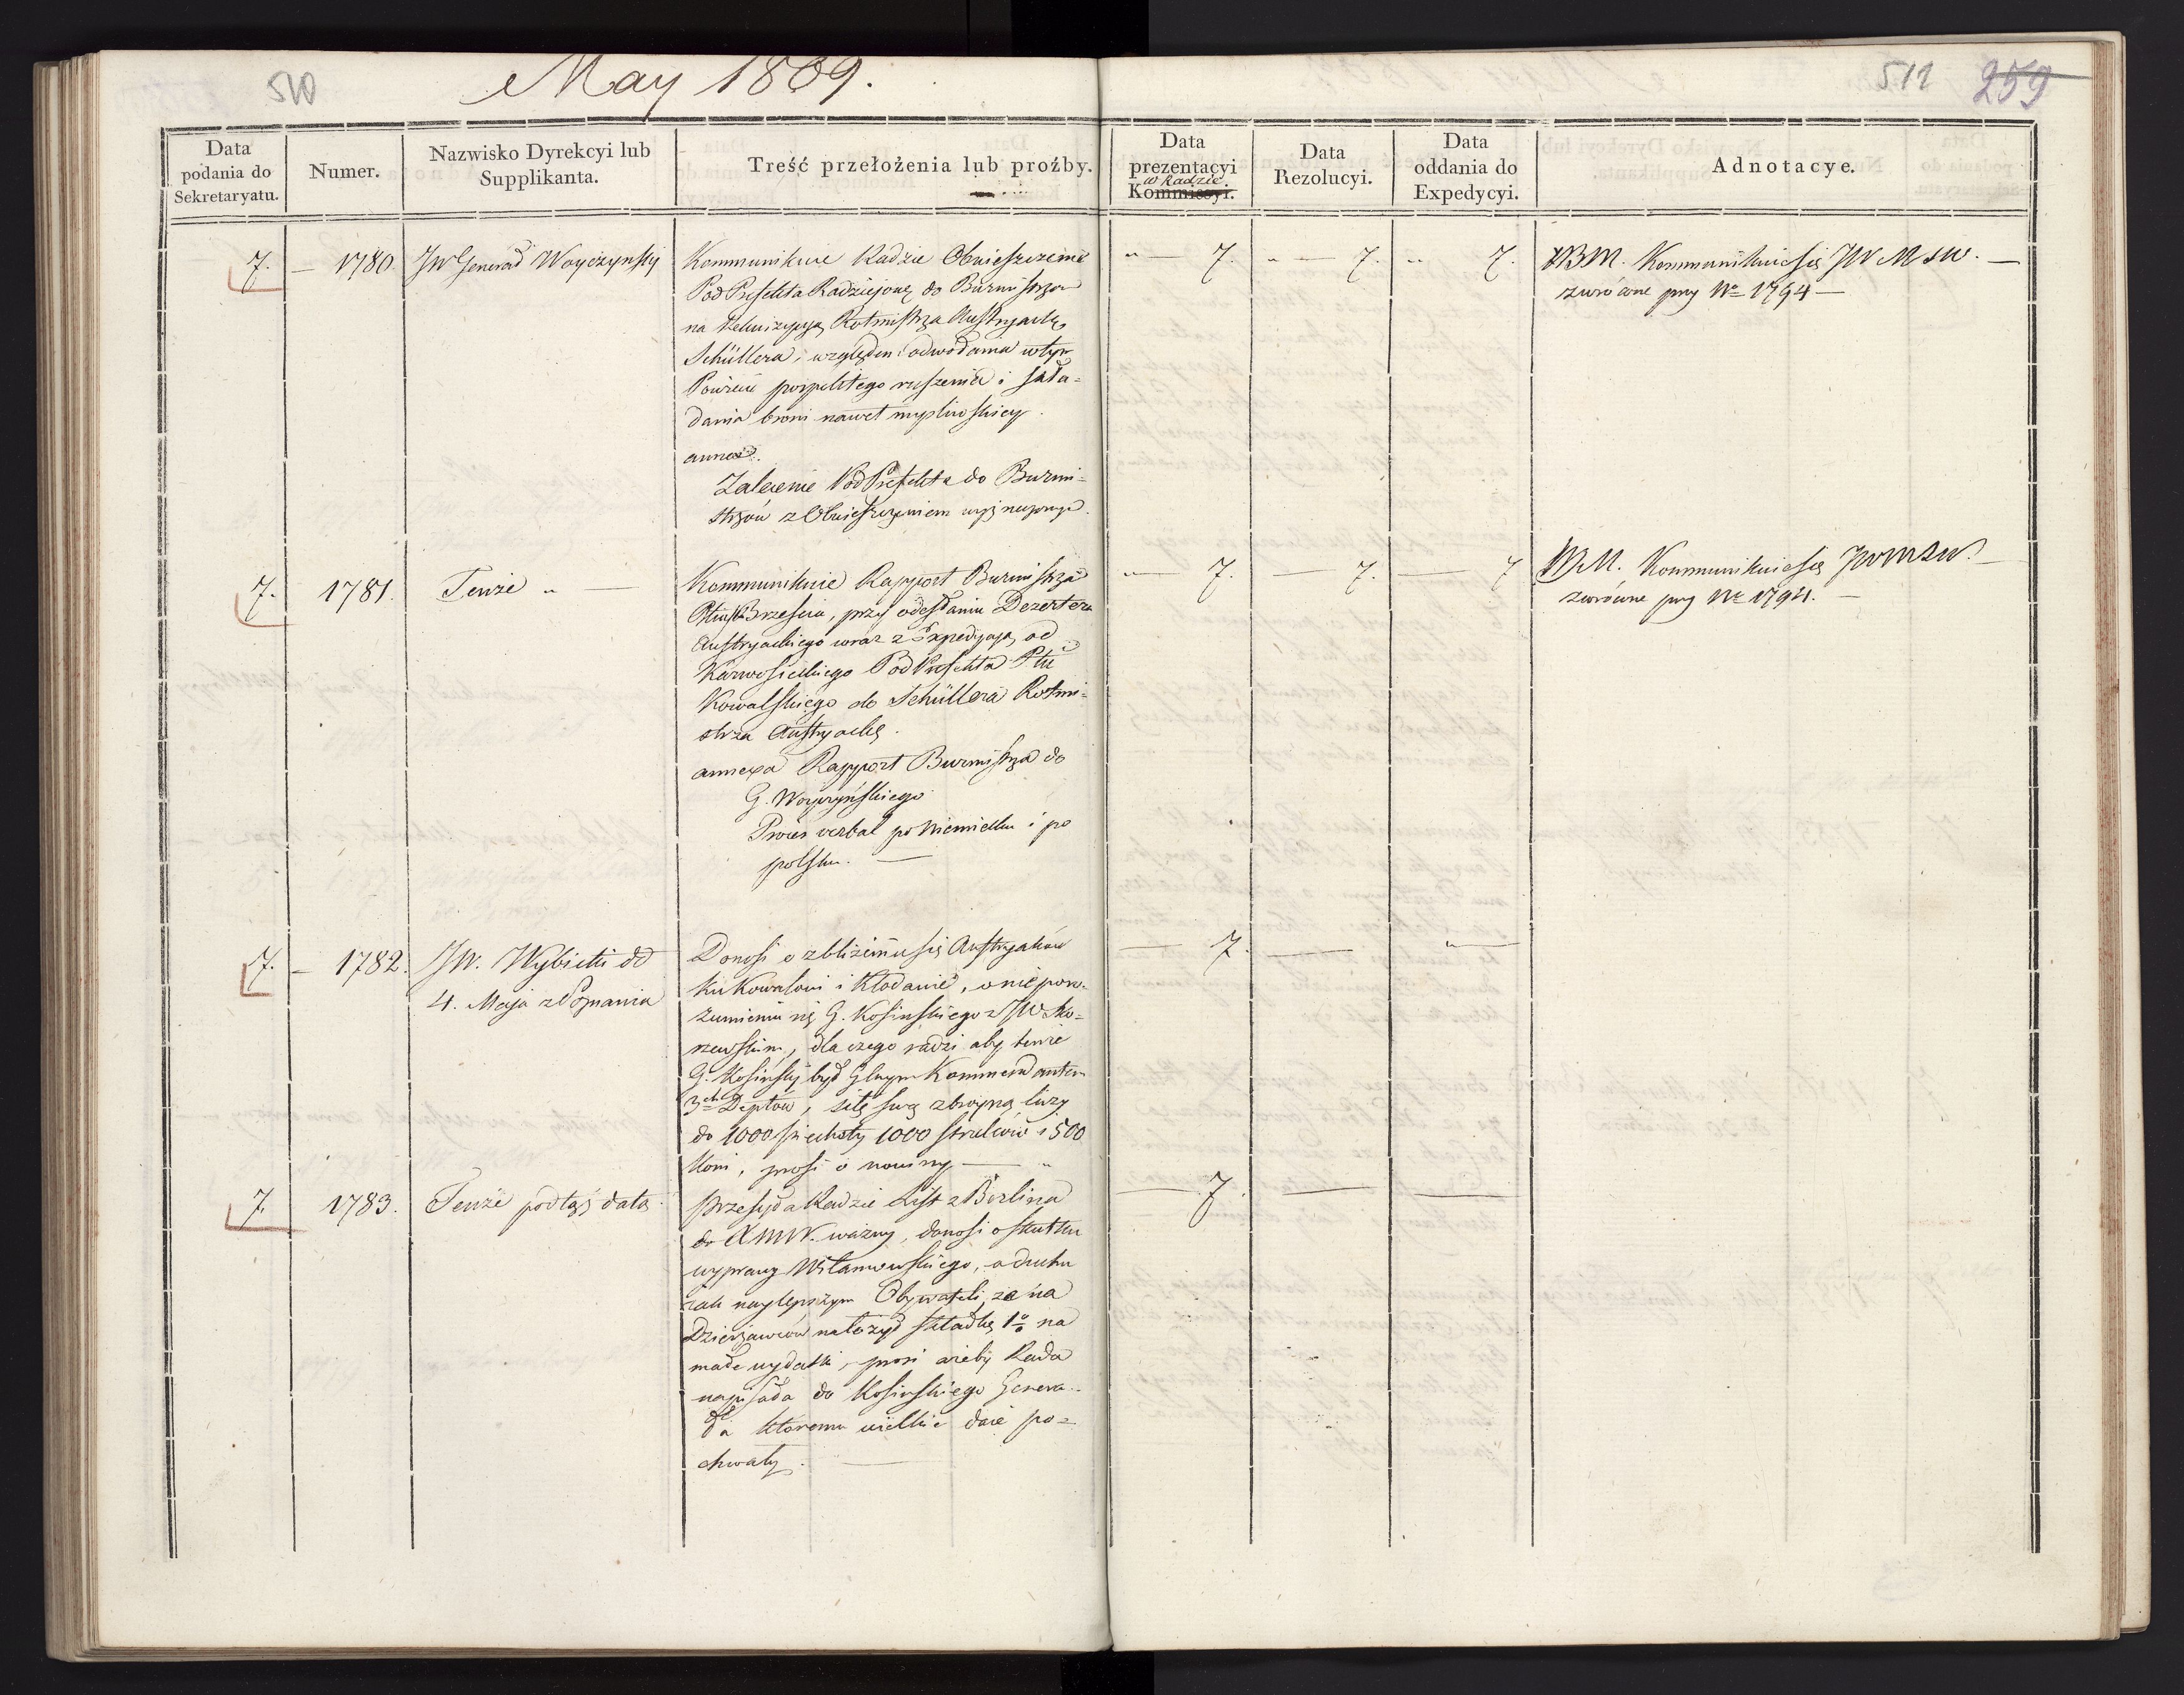 510
May 1809.
511 259
Data podania do Sekretaryatu.
Numer.
Nazwisko Dyrekcyi lub Supplikanta.
Treść przełożenia lub proźby.
Data prezentacyi w Radzie. Kommissyi.
Data Rezolucyi.
Data oddania do Expedycyi.
Adnotacye.
7. — 1780. JW Generał Woyczynsky
Kommunikuie Radzie Obwieszczenie
Pod Prefekta Radziejows do Burmistrzow
na Rekwizycyą Rotmistrza Austryack
Schüllera, względem odwodania wtym
Powiecie pospolitego ruszenia i skła-
dania broni nawet mysliwskiey.
annexa.
Zalecenie Pod Prefekta do Burmi-
strzów z Obwieszczeniem
" — 7. " — 7. " 7.
XBM. Kommunikuie się JW MSW. —
zwrócone przy No 1794 —
7. 1781. Tenże " —
Kommunikuie Rapport Burmistrza
Brzescia, przy odesłaniu Dezertera
Austryackiego wraz z Expedycyą od
Karwosieckiego Pod Prefekta Ptu
Kowalskiego do Schüllera Rotmi-
strza Austryack.
annexa Rapport Burmistrza do
G. Woyczyńskiego
Proces verbal po Niemiecku i po
polsku. —
" — 7. — 7. — 7
XBM. Kommunikuie się JWMSW. —
zwrócone przy No 1794. —
7. — 1782. JW. Wybicki dd
4. Maja z Poznania
Donosi o zbliżeniu się Austryaków
ku Kowalowi i Kłodawie, o niepor-
zumieniu się G. Kosinskiego z JW Ko-
rzewskim, dla czego radzi aby tenże
G. Kosinsky był Głnym Kommendantem
3ch Deptów, siłę swą zbroyną liczy
do 1000 piechoty 1000 strzelców i 500
koni, prosi o nowiny — "
— 7. — " —
7. 1783. Tenże pod tąż datą.
przesyła Radzie List z Berlina
do XMW. ważny, donosi o skutku
wyprawy Wilamowskiego, o duchu
iak naylepszym Obywateli, że na
Dzierżawców nałożył składkę 1% na
małe wydatki, prosi ażeby Rada
napisała do Kosinskiego Genera-
ła któremu wielkie daie po-
chwały. —
— 7. — —